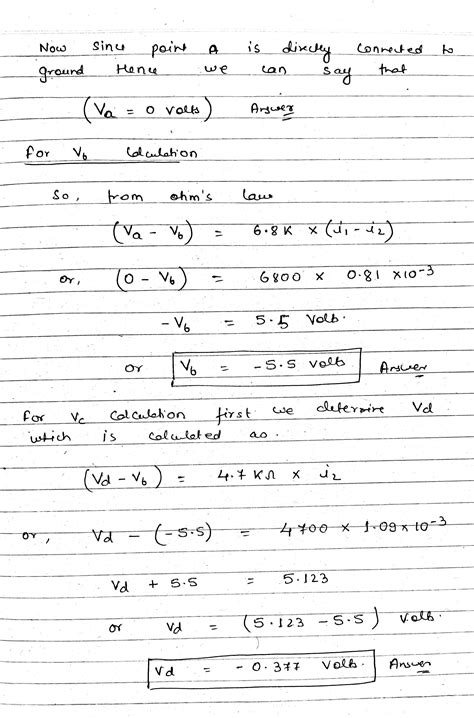 Now since point A is directly connected to
ground Hence we can say that
(Va = 0 volts) Answer
for Vb Calculation
So, from ohm's law
(Va - Vb) = 6.8K × (i1 - i2)
or, (0 - Vb) = 6800 × 0.81 ×10-3
-Vb = 5.5 Volts.
or Vb = -5.5 volts Answer
for Vc calculation first we determine Vd
which is calculated as.
(Vd - Vb) = 4.7 KΩ × i2
or, Vd - (-5.5) = 4700 × 1.09 × 10-3
Vd + 5.5 = 5.123
or Vd = (5.123 - 5.5) Volts.
Vd = - 0.377 Volts. Answer